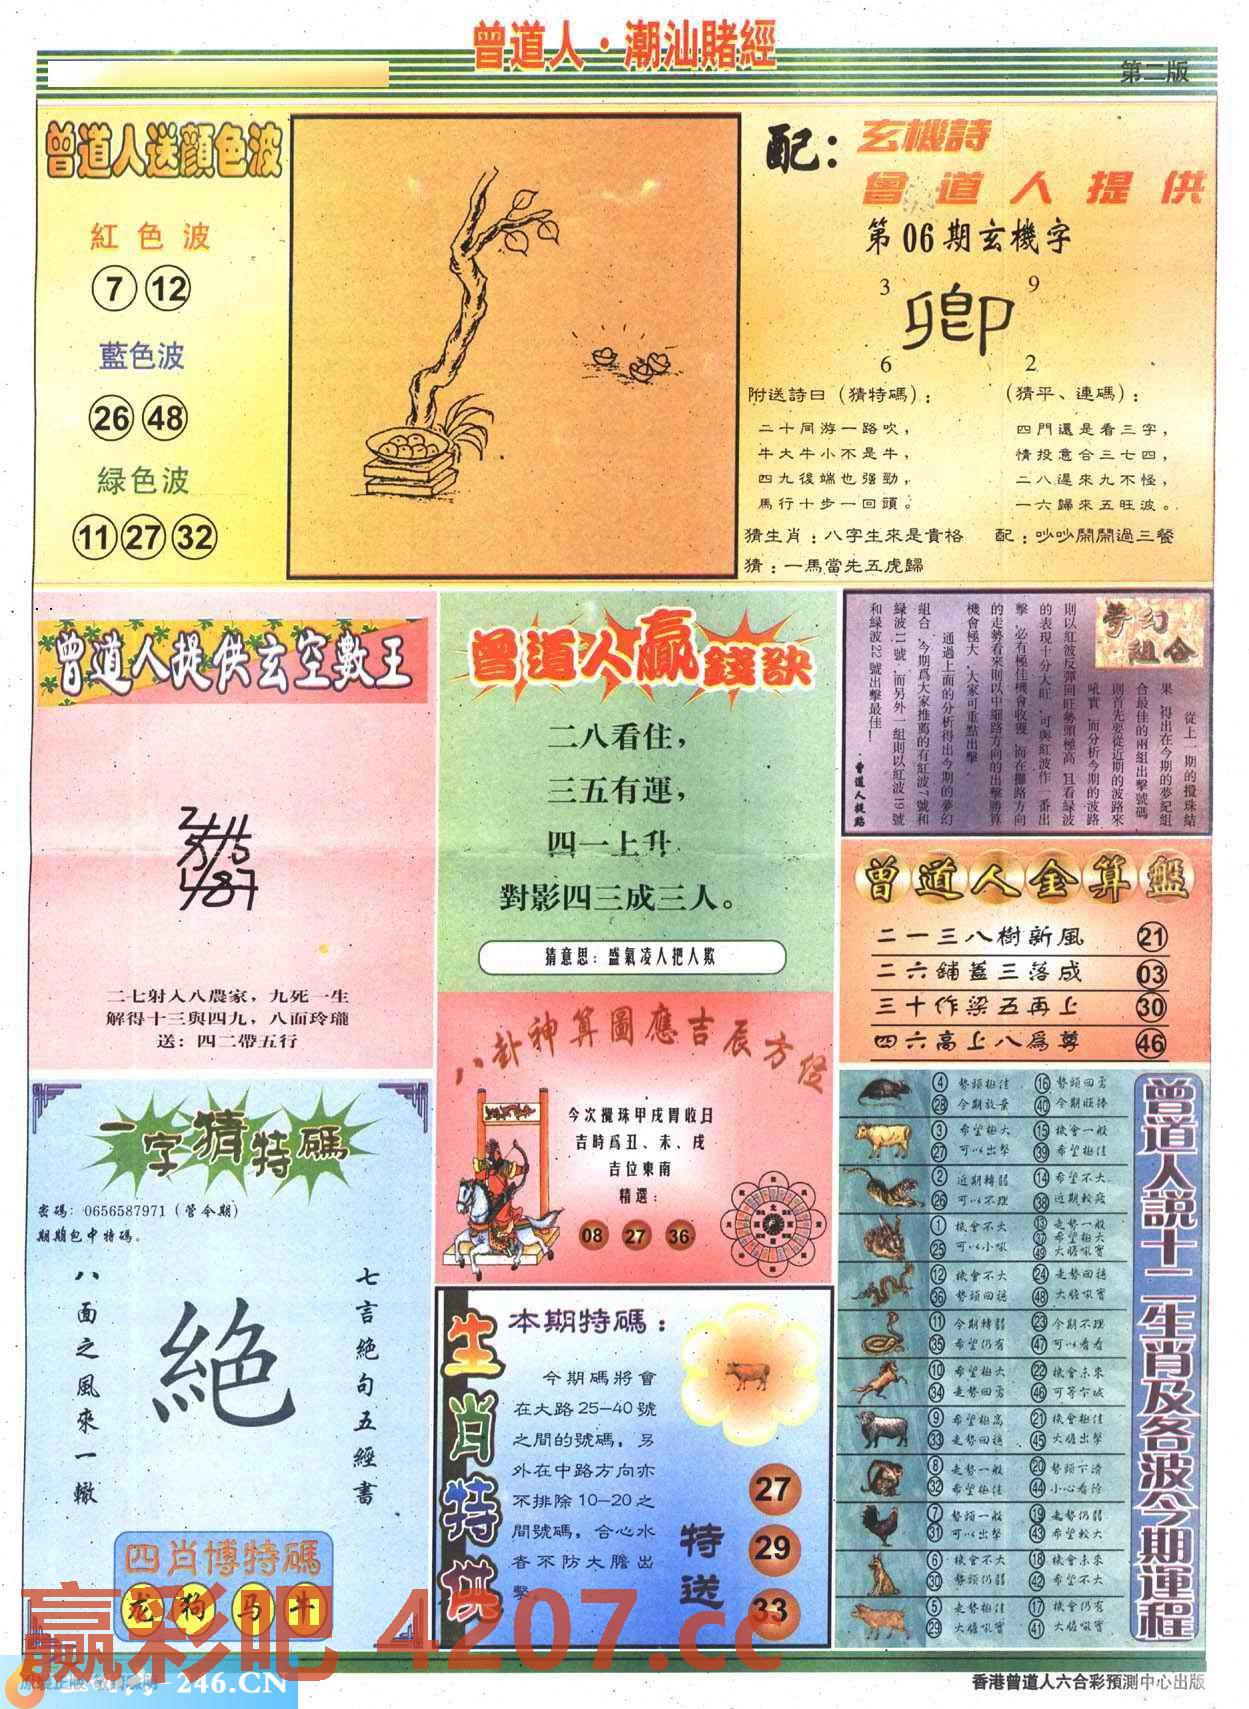 曾道人·潮汕賭經
第二版
曾道人送顏色波
紅色波
7 12
藍色波
26 48
緑色波
11 27 32
配：玄機詩
曾道人提供
第06期玄機字
3 9
卿
6 2
附送詩曰（猜特碼）：
二十同游一路吹，
牛大牛小不是牛，
四九後端也强勁，
馬行十步一回頭。
（猜平、連碼）：
四門還是看三字，
情投意合三七四，
二八遲來九不怪，
一六歸來五旺波。
猜生肖：八字生來是貴格
配：吵吵鬧鬧過三餐
猜：一馬當先五虎歸
曾道人提供玄空數王
二七射入八農家，九死一生
解得十三與四九，八面玲瓏
送：四二帶五行
曾道人贏錢訣
二八看住，
三五有運，
四一上升，
對影四三成三人。
猜意思：盛氣凌人把人欺
夢幻組合
從上一期的攪珠結
果，得出在今期的夢紀組
合最佳的兩組出擊號碼，
則首先要從近期的波路來
吼實，而分析今期的波路
則以紅波反彈回旺勢頭極高，且看緑波
的表現十分大旺，可與紅波作一番出
擊，必有極佳機會收獲，而在攤路方向
的走勢看來則以中靠路方向的出擊勝算
機會極大，大家可重點出擊。
通過上面的分析得出今期的夢幻
組合，今期爲大家推薦的有紅波7號和
緑波11號，而另外一組則以紅波19號
和緑波22號出擊最佳！
曾道人提路
曾道人金算盤
二一三八樹新風 21
二六鋪蓋三落成 03
三十作梁五再上 30
四六高上八爲尊 46
一字猜特碼
密碼：0656587971（管令期）
期期包中特碼。
八面之風來一轍
絕
七言絕句五經書
四肖博特碼
龙 狗 马 牛
八卦神算圖應吉辰方位
今次攪珠甲戌胃收日
吉時爲丑、未、戌
吉位東南
精選：
08 27 36
生肖特供
本期特碼：
今期碼將會
在大路25—40號
之間的號碼，另
外在中路方向亦
不排除10—20之
間號碼，合心水
者不防大膽出
擊。
特送
27
29
33
曾道人説十二生肖及各波今期運程
④ 勢頭極佳 ⑯ 勢頭回勇
㉘ 今期放棄 ㊵ 今期旺捧
③ 希望極大 ⑮ 機會一般
㉗ 可以出擊 ㊴ 希望極佳
② 近期轉弱 ⑭ 希望不大
㉖ 可以不理 ㊳ 近期較疲
① 機會不大 ⑬ 走勢一般
㉕ 可以小吼 ㊲ 希望極大
㊾ 大膽吼實
⑫ 機會不大 ㉔ 走勢回穩
㊱ 勢頭回穩 ㊽ 大膽吼實
⑪ 今期轉弱 ㉓ 今期不理
㉟ 希望仍有 ㊼ 可以看看
⑩ 希望極大 ㉒ 機會未來
㉞ 走勢回勇 ㊻ 可等下城
⑨ 希望極高 ㉑ 機會極佳
㉝ 走勢回穩 ㊺ 大膽出擊
⑧ 走勢一般 ⑳ 勢頭下滑
㉜ 希望極佳 ㊹ 小心看管
⑦ 勢頭一般 ⑲ 走勢仍弱
㉛ 可以出擊 ㊸ 希望較大
⑥ 機會不大 ⑱ 機會未來
㉚ 勢頭仍弱 ㊷ 希望不大
⑤ 走勢極佳 ⑰ 機會仍有
㉙ 大膽吼實 ㊶ 大膽吼實
赢彩吧 4207.cc
246.CN
香港曾道人六合彩預測中心出版